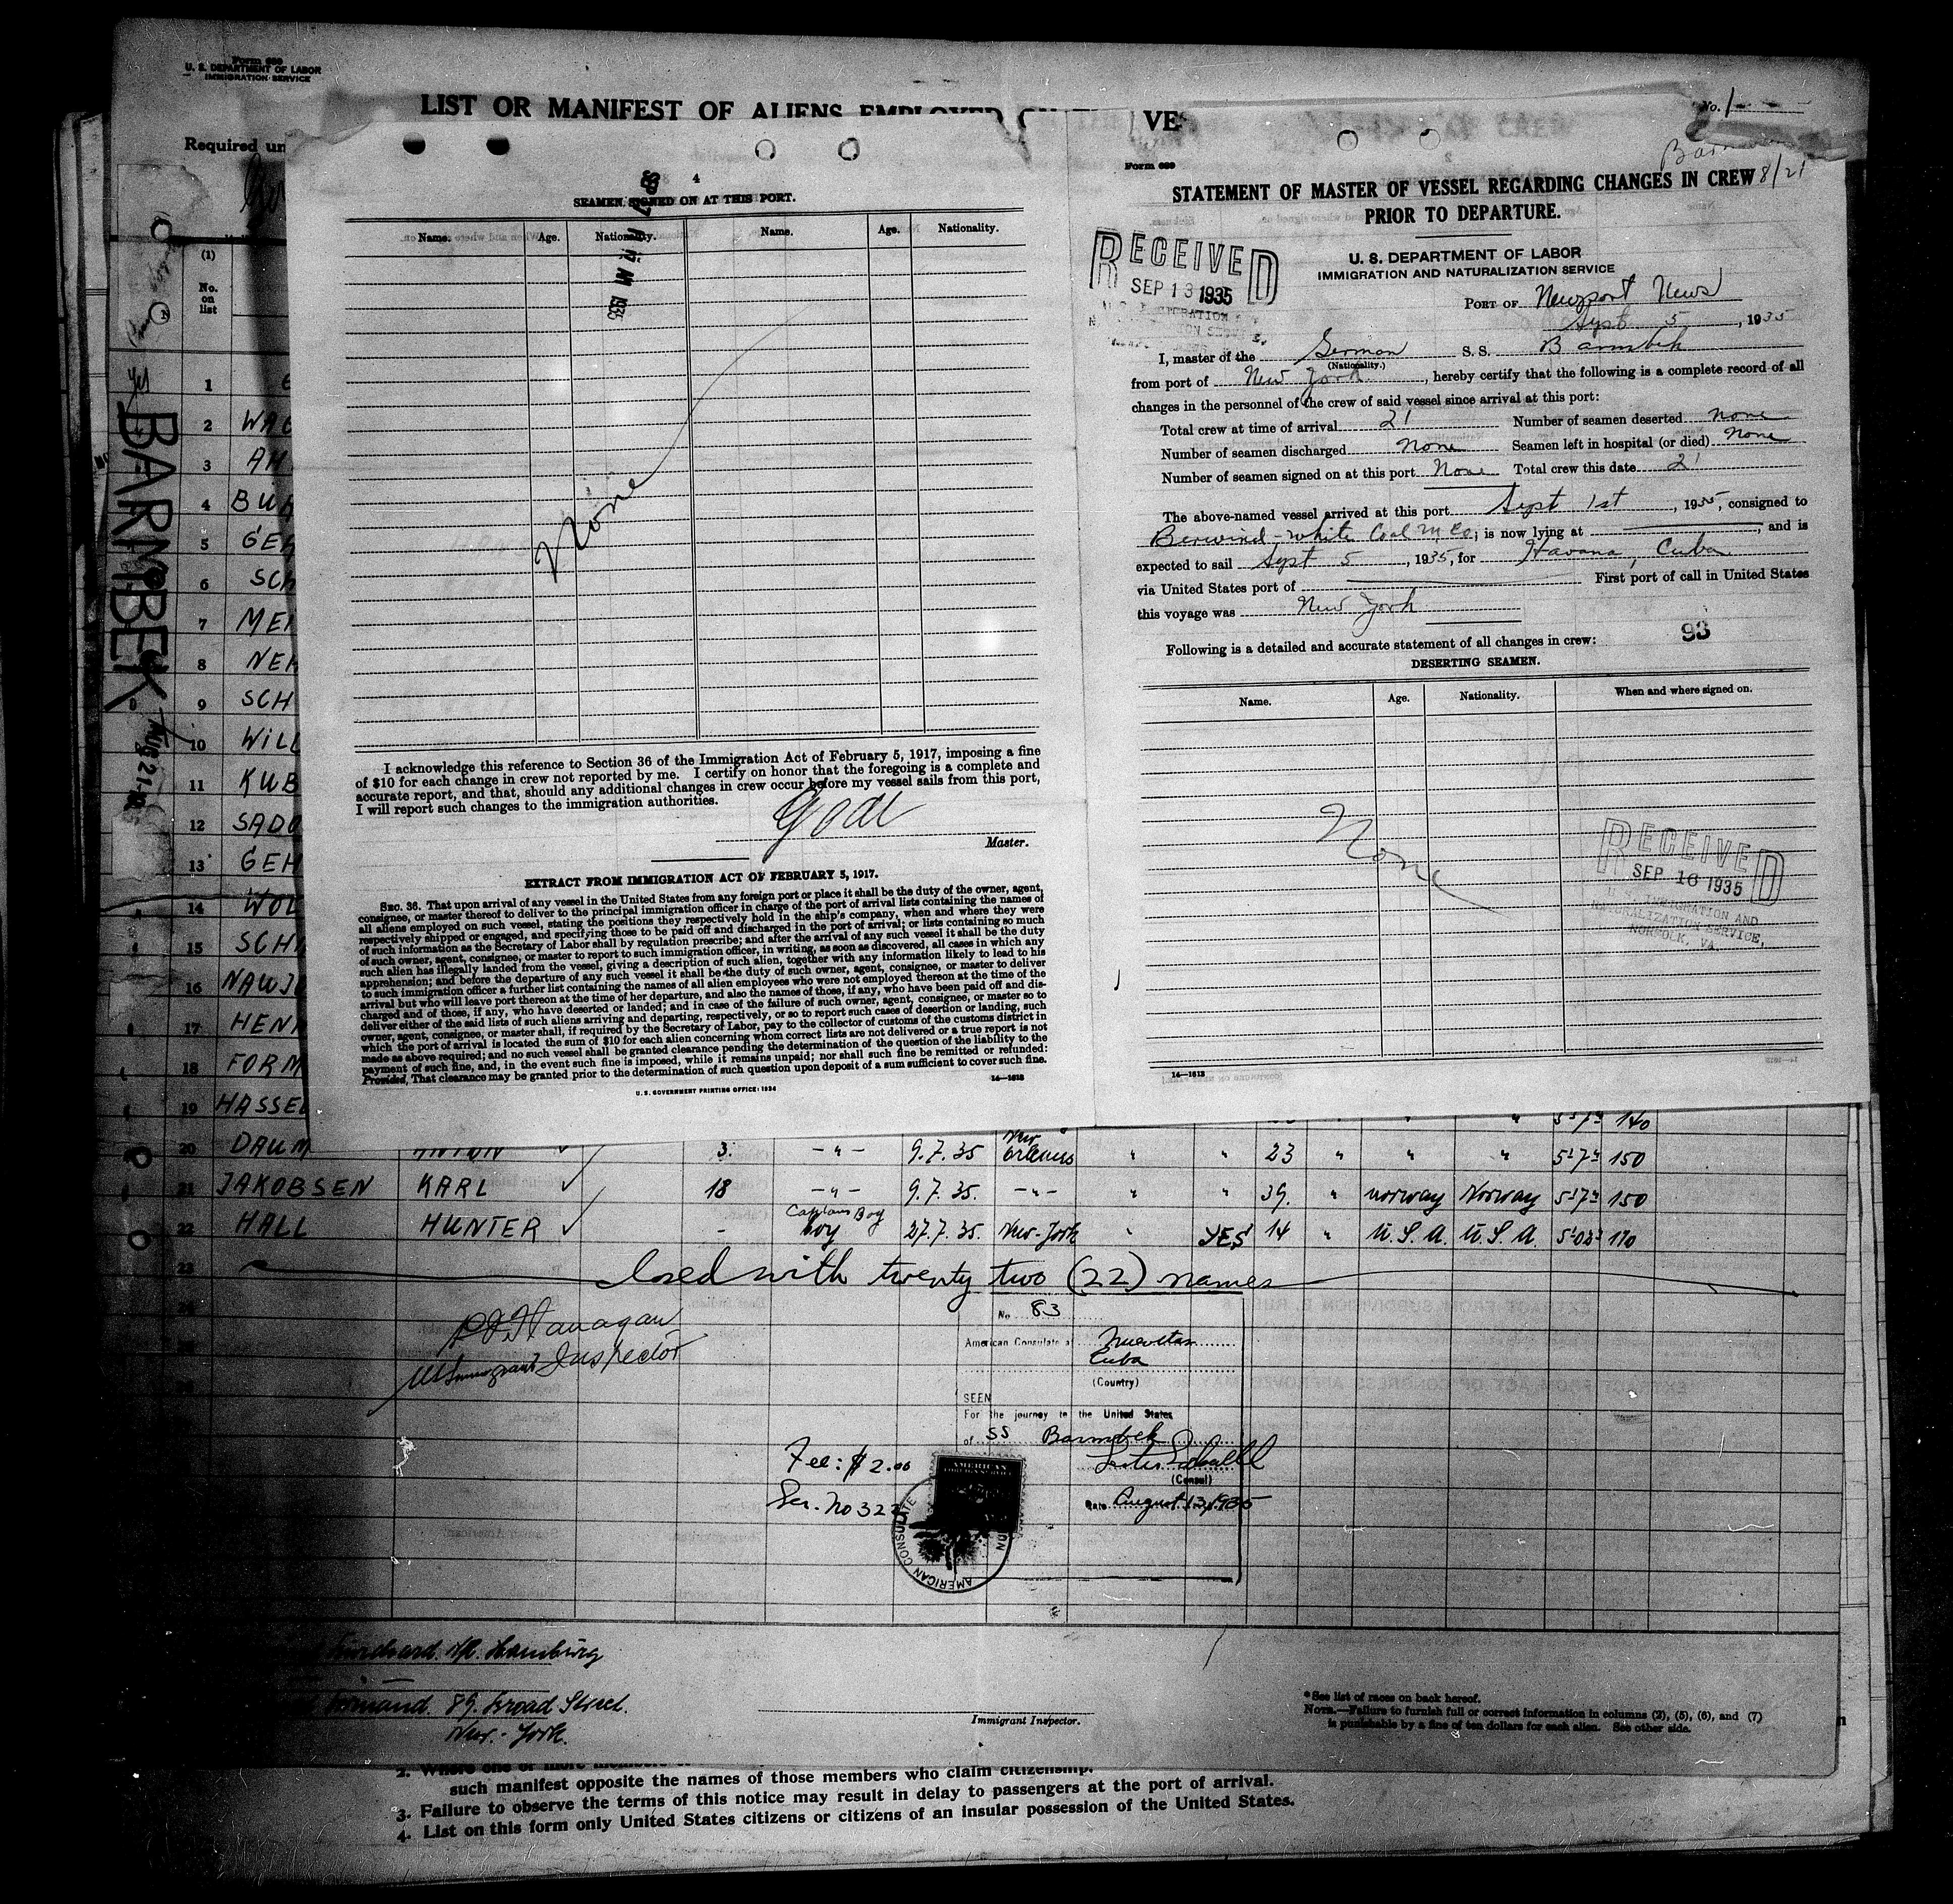 Form 689
U. S. DEPARTMENT OF LABOR
IMMIGRATION SERVICE
LIST OR MANIFEST OF ALIENS EMPLOYED
VES
No. 1
Required un
(1)
No.
on
list
yes
BARMBEK
AUG 21
1
2 WAG
3 AH
4 BUH
5 GER
6 SCH
7 MEI
8 NEH
9 SCH
10 WILL
11 KUB
12 SADO
13 GEH
14 WOL
15 SCH
16 NAWJ
17 HEN
18 FORM
19 HASSEL
4
SEAMEN SIGNED ON AT THIS PORT.
Name. Age. Nationality. Name. Age. Nationality.
None
I acknowledge this reference to Section 36 of the Immigration Act of February 5, 1917, imposing a fine
of $10 for each change in crew not reported by me. I certify on honor that the foregoing is a complete and
accurate report, and that, should any additional changes in crew occur before my vessel sails from this port,
I will report such changes to the immigration authorities.
Master.
EXTRACT FROM IMMIGRATION ACT OF FEBRUARY 5, 1917.
SEC. 36. That upon arrival of any vessel in the United States from any foreign port or place it shall be the duty of the owner, agent,
consignee, or master thereof to deliver to the principal immigration officer in charge of the port of arrival lists containing the names of
all aliens employed on such vessel, stating the positions they respectively hold in the ship's company, when and where they were
respectively shipped or engaged, and specifying those to be paid off and discharged in the port of arrival; or lists containing so much
of such information as the Secretary of Labor shall by regulation prescribe; and after the arrival of any such vessel it shall be the duty
of such owner, agent, consignee, or master to report to such immigration officer, in writing, as soon as discovered, all cases in which any
such alien has illegally landed from the vessel, giving a description of such alien, together with any information likely to lead to his
apprehension; and before the departure of any such vessel it shall be the duty of such owner, agent, consignee, or master to deliver
to such immigration officer a further list containing the names of all alien employees who were not employed thereon at the time of the
arrival but who will leave port thereon at the time of her departure, and also the names of those, if any, who have been paid off and dis-
charged and of those, if any, who have deserted or landed; and in case of the failure of such owner, agent, consignee, or master so to
deliver either of the said lists of such aliens arriving and departing, respectively, or so to report such cases of desertion or landing, such
owner, agent, consignee, or master shall, if required by the Secretary of Labor, pay to the collector of customs of the customs district in
which the port of arrival is located the sum of $10 for each alien concerning whom correct lists are not delivered or a true report is not
made as above required; and no such vessel shall be granted clearance pending the determination of the question of the liability to the
payment of such fine, and, in the event such fine is imposed, while it remains unpaid; nor shall such fine be remitted or refunded:
Provided, That clearance may be granted prior to the determination of such question upon deposit of a sum sufficient to cover such fine.
U. S. GOVERNMENT PRINTING OFFICE: 1934 14—1613
Form 689
8/21
STATEMENT OF MASTER OF VESSEL REGARDING CHANGES IN CREW
PRIOR TO DEPARTURE.
RECEIVED
SEP 13 1935
U. S. DEPARTMENT OF LABOR
IMMIGRATION AND NATURALIZATION SERVICE
PORT OF Newport News
Sept 5, 1935
I, master of the German S. S. Barmbek
(Nationality.)
from port of New York, hereby certify that the following is a complete record of all
changes in the personnel of the crew of said vessel since arrival at this port:
Total crew at time of arrival 21 Number of seamen deserted none
Number of seamen discharged None Seamen left in hospital (or died) None
Number of seamen signed on at this port None Total crew this date 21
The above-named vessel arrived at this port Sept 1st, 1935, consigned to
Berwind-White Coal M Co; is now lying at , and is
expected to sail Sept 5, 1935, for Havana, Cuba
via United States port of First port of call in United States
this voyage was New York
93
Following is a detailed and accurate statement of all changes in crew:
DESERTING SEAMEN.
Name. Age. Nationality. When and where signed on.
None
RECEIVED
SEP 16 1935
U. S. IMMIGRATION AND
NATURALIZATION SERVICE,
NORFOLK, VA.
14—1613
5'7" 140
20 DAUM ANTON 3. -"- 9.7.35 New Orleans " " 23 " " " 5'7" 150
21 JAKOBSEN KARL 18 -"- 9.7.35. -"- " " 39. " Norway Norway 5'7" 150
Captains Boy
22 HALL HUNTER - boy 27.7.35. New-York " YES 14 " U.S.A. U.S.A. 110
23 Closed with twenty two (22) names
Flanagan
US Immigrant Inspector
No 83
American Consulate at Nuevitas
Cuba
(Country)
SEEN
For the journey to the United States
of SS Barmbek
(Consul)
Date August 13, 1935
Fee: $2.00
Ser. No 322
AMERICAN
FOREIGN SERVICE
AMERICAN CONSULATE
Hamburg
89. Broad Street.
New-York.
Immigrant Inspector.
*See list of races on back hereof.
NOTE.—Failure to furnish full or correct information in columns (2), (5), (6), and (7)
is punishable by a fine of ten dollars for each alien. See other side.
2. Where one or more members
such manifest opposite the names of those members who claim citizenship.
3. Failure to observe the terms of this notice may result in delay to passengers at the port of arrival.
4. List on this form only United States citizens or citizens of an insular possession of the United States.